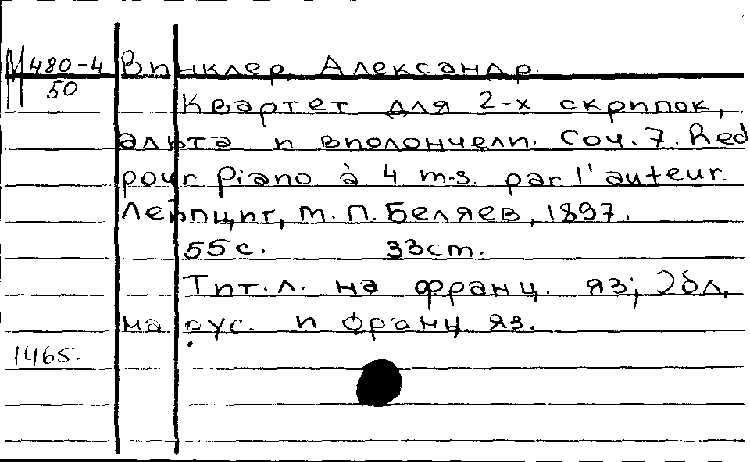 М 480-4 Винклер, Александр.
50
Квартет для 2-х скрипок,
альта и виолончели. Соч. 7. Red
pour Piano à 4 m-s. par l'auteur.
Лейпциг, М. П. Беляев, 1897.
55 с. 33 см.
Тит. л. на франц. яз; Обл.
на рус. и франц яз.
1465.